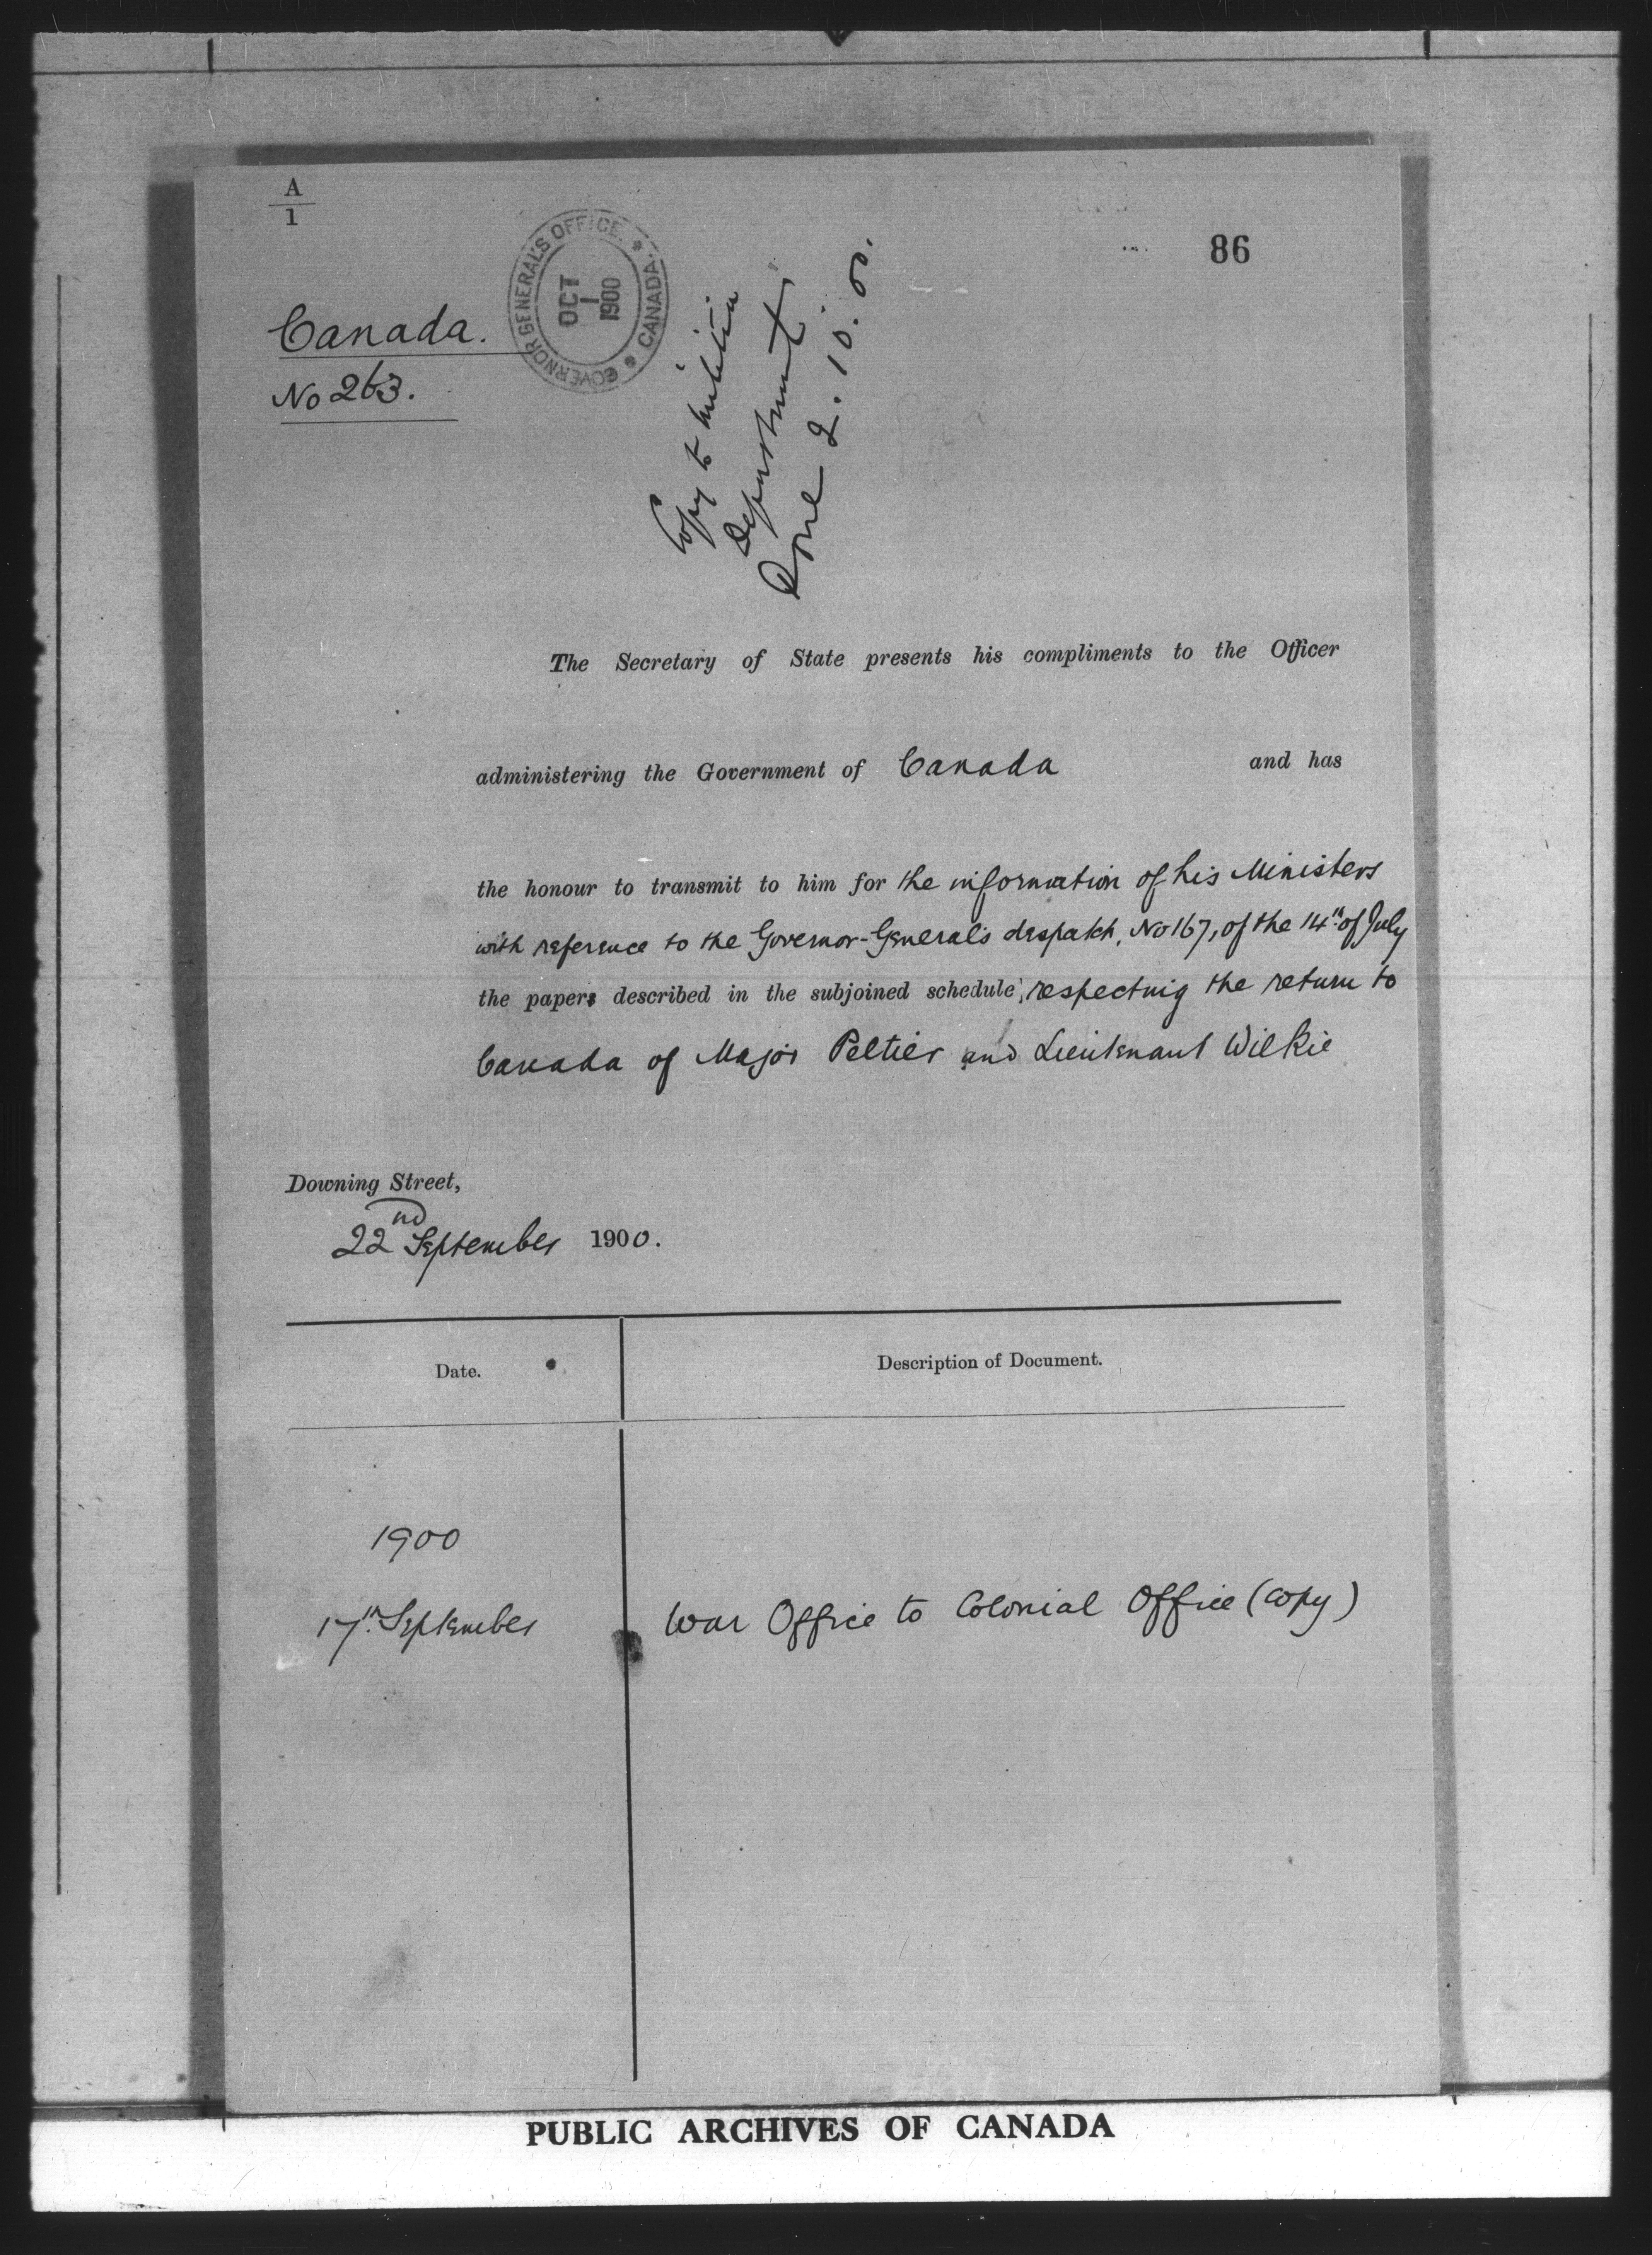 A
1
86
GOVERNOR GENERAL'S OFFICE. * CANADA. *
OCT
1
1900
Canada.
No 263.
Copy to Militia
Department
Done 2.10.00.
The Secretary of State presents his compliments to the Officer
administering the Government of Canada and has
the honour to transmit to him for the information of his Ministers
with reference to the Governor-General's despatch, No 167, of the 14th of July
the papers described in the subjoined schedule, respecting the return to
Canada of Major Peltier and Lieutenant Wilkie
Downing Street,
22nd September 1900.
Date.
Description of Document.
1900
17th September
War Office to Colonial Office (copy)
PUBLIC ARCHIVES OF CANADA